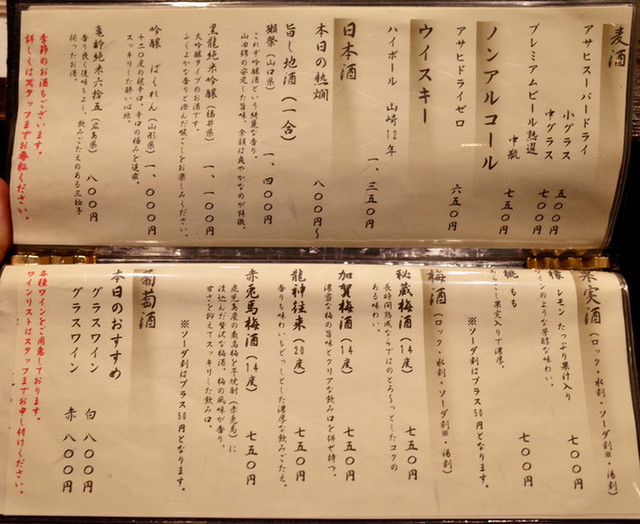 麦酒
アサヒスーパードライ
小グラス 五〇〇円
中グラス 七〇〇円
プレミアムビール熟選
中瓶 七五〇円
ノンアルコール
アサヒドライゼロ 六五〇円
ウイスキー
ハイボール 山崎12年 一、三五〇円
日本酒
本日の熱燗 八〇〇円〜
旨し地酒(一合)
獺祭(山口県) 一、四〇〇円
これぞ吟醸酒という綺麗な香り。
山田錦の安定した旨味。余韻は爽やかなのが特徴。
黒龍純米吟醸(福井県) 一、一〇〇円
大吟醸タイプのお酒です。
ふくよかな香りと澄んだ喉ごしをお楽しみください。
吟醸 ばくれん(山形県) 一、〇〇〇円
十二〇度の超辛口。辛口の極みを追求。
スッキリした酔い心地。
亀齢純米六拾五(広島県) 八〇〇円
香り良く後味もよく、飲みごたえのある三拍子
揃ったお酒。
季節のお酒もございます。
詳しくはスタッフまでお尋ねください。
果実酒(ロック・水割・ソーダ割※・湯割)
檬 レモン たっぷり果汁入り 七〇〇円
インのような芳醇な味わい。
桃 もも 七〇〇円
らごし果実入りで濃厚。
※ソーダ割はプラス50円となります。
梅酒(ロック・水割・ソーダ割※・湯割)
秘蔵梅酒(14度) 七五〇円
長時間熟成ならではのとろ〜っとしたコクの
ある味わい。
加賀梅酒(14度) 七五〇円
濃密な梅の旨味とクリアな飲み口を併せ持つ。
龍神梅来(20度) 七五〇円
香りも味わいもどっしとした濃厚な飲みごたえ。
赤兎馬梅酒(14度) 七五〇円
鹿児島産の南高梅を芋焼酎(赤兎馬)に
漬込んだ贅沢な梅酒。梅の風味が香り、
甘さを抑えてスッキリした飲み口。
※ソーダ割はプラス50円となります。
葡萄酒
本日のおすすめ
グラスワイン 白 八〇〇円
グラスワイン 赤 八〇〇円
各種ワインをご用意しております。
ワインリストはスタッフまでお申し付けください。